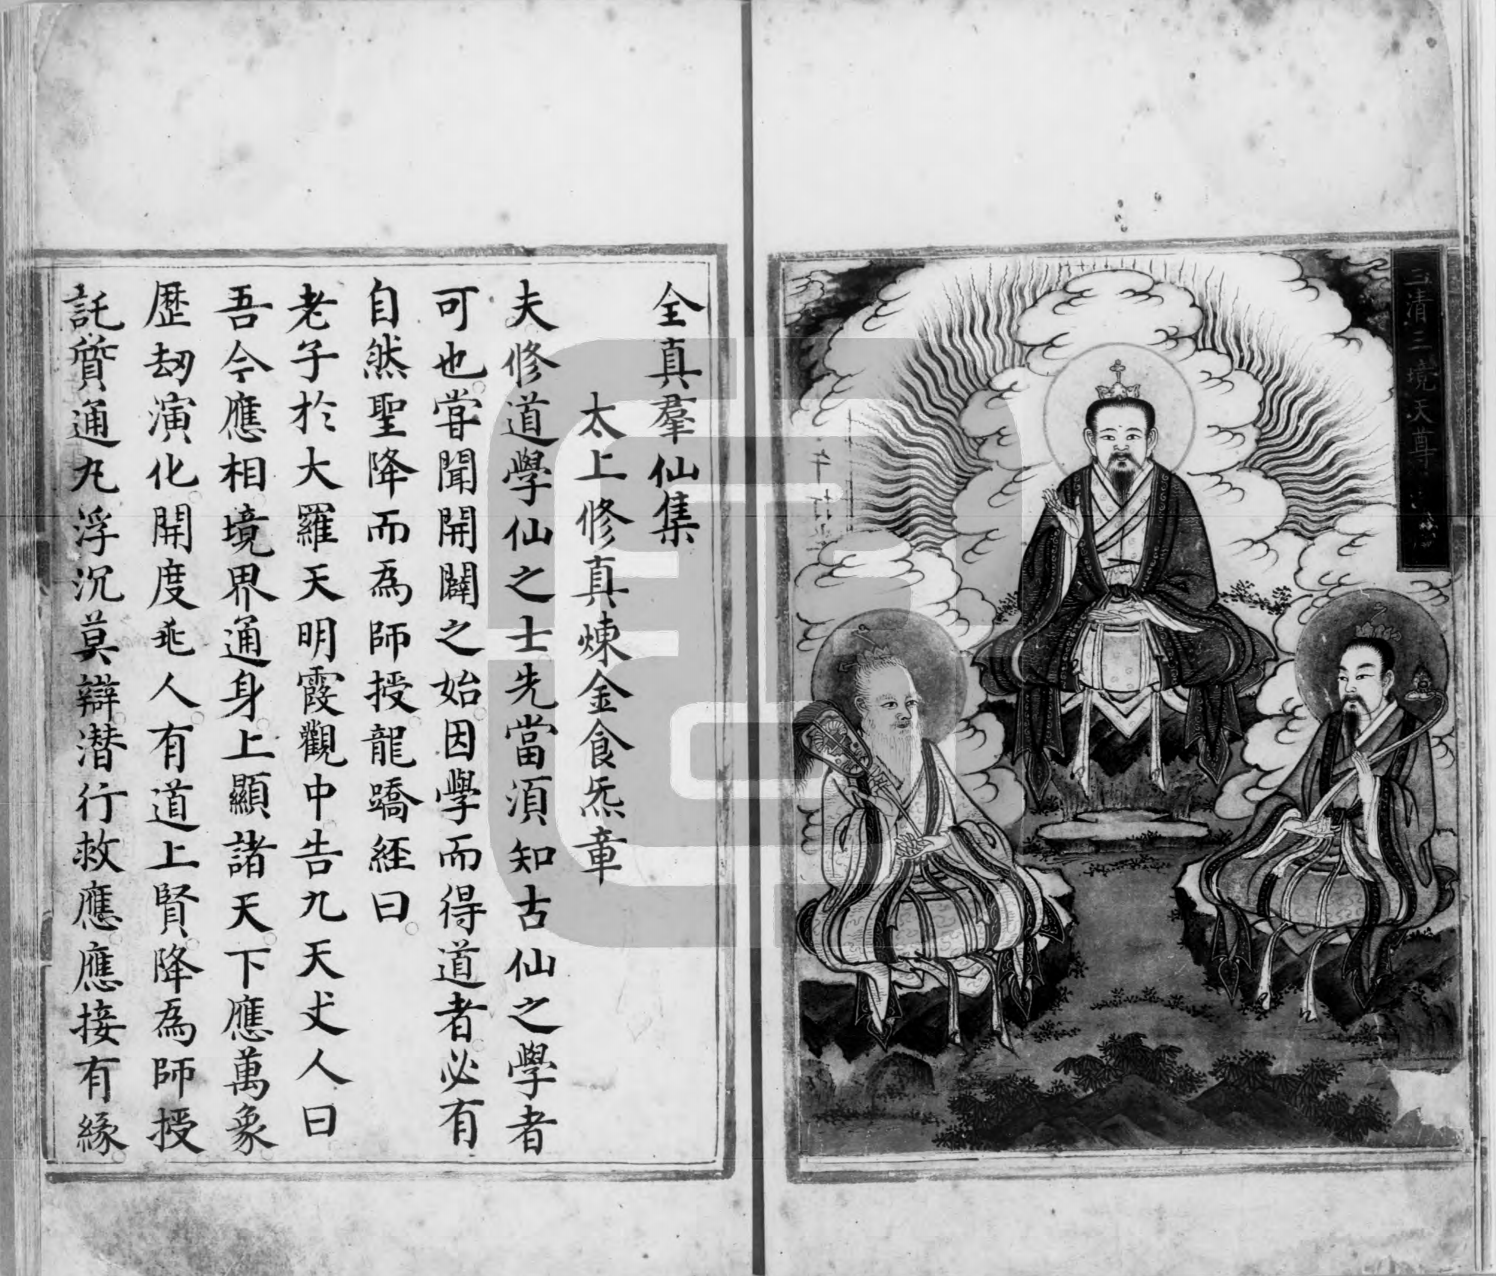 三清三境天尊
全真羣仙集
太上修真煉金食炁章
夫修道學仙之士先當須知古仙之學者
可也甞聞開闢之始因學而得道者必有
自然聖降而為師授龍蹻經曰
老子於大羅天明霞觀中告九天丈人曰
吾今應相境界通身上顯諸天下應萬象
歷刼演化開度兆人有道上賢降為師授
託質通凡浮沉莫辯潜行救應應接有緣